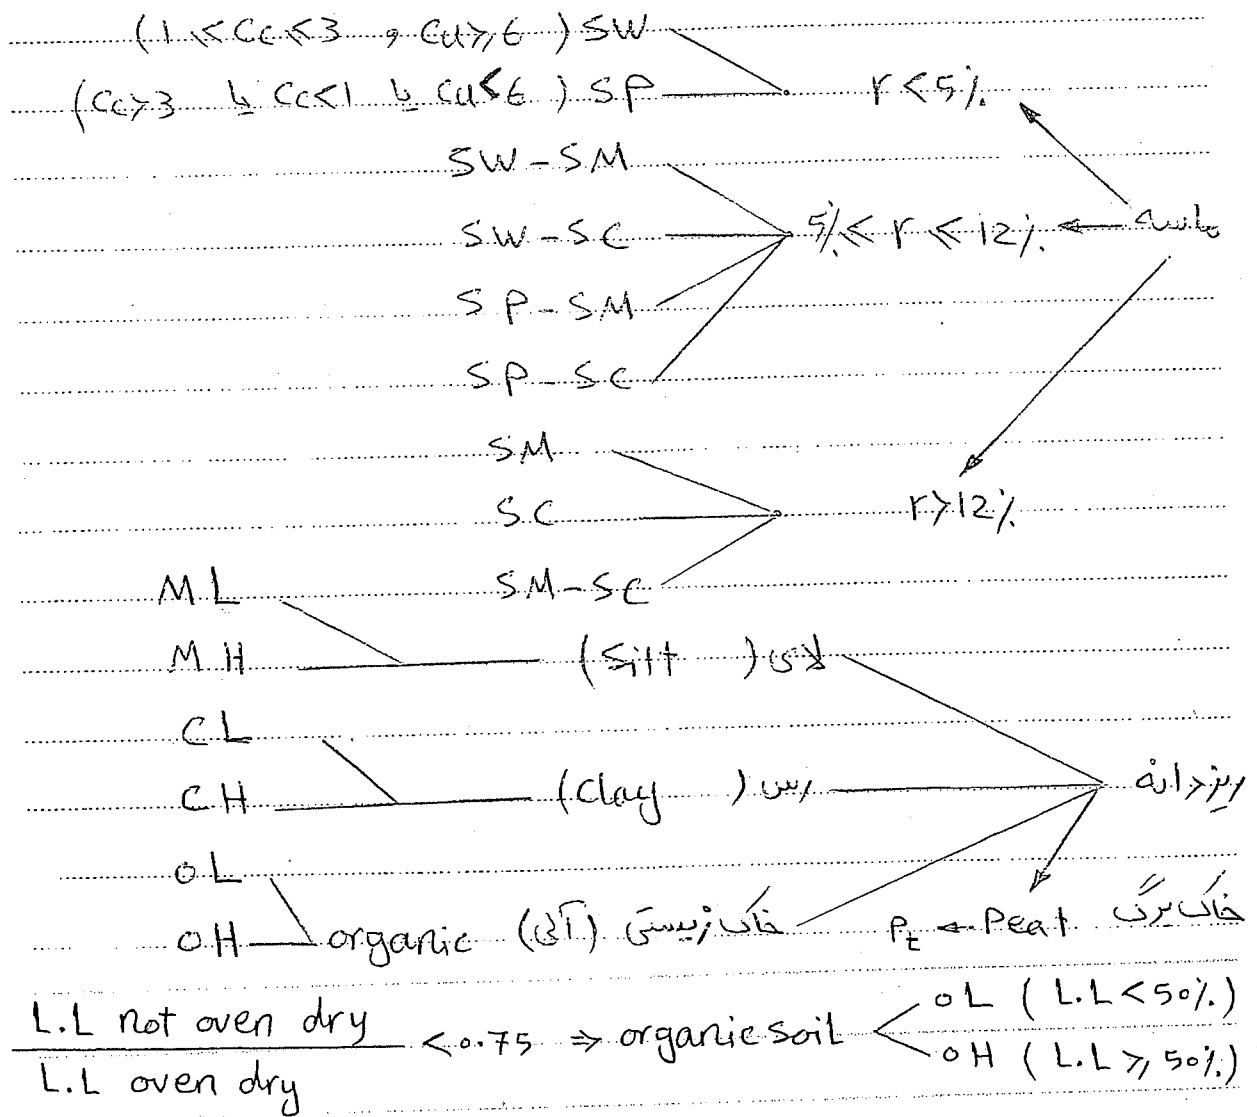 (1 ≤ Cc ≤ 3 و Cu ≥ 6) SW
(Cc > 3 یا Cc < 1 یا Cu < 6) SP r < 5%
SW - SM
SW - SC 5% ≤ r ≤ 12% ← ماسه
SP - SM
SP - SC
SM
SC r > 12%
ML SM - SC
MH (Silt) لای
CL
CH (Clay) رس ریزدانه
OL
OH organic (آلی) خاک زیستی Pt ← Peat خاک برگ
L.L not oven dry / L.L oven dry < 0.75 ⇒ organic soil
OL (L.L < 50%)
OH (L.L ≥ 50%)